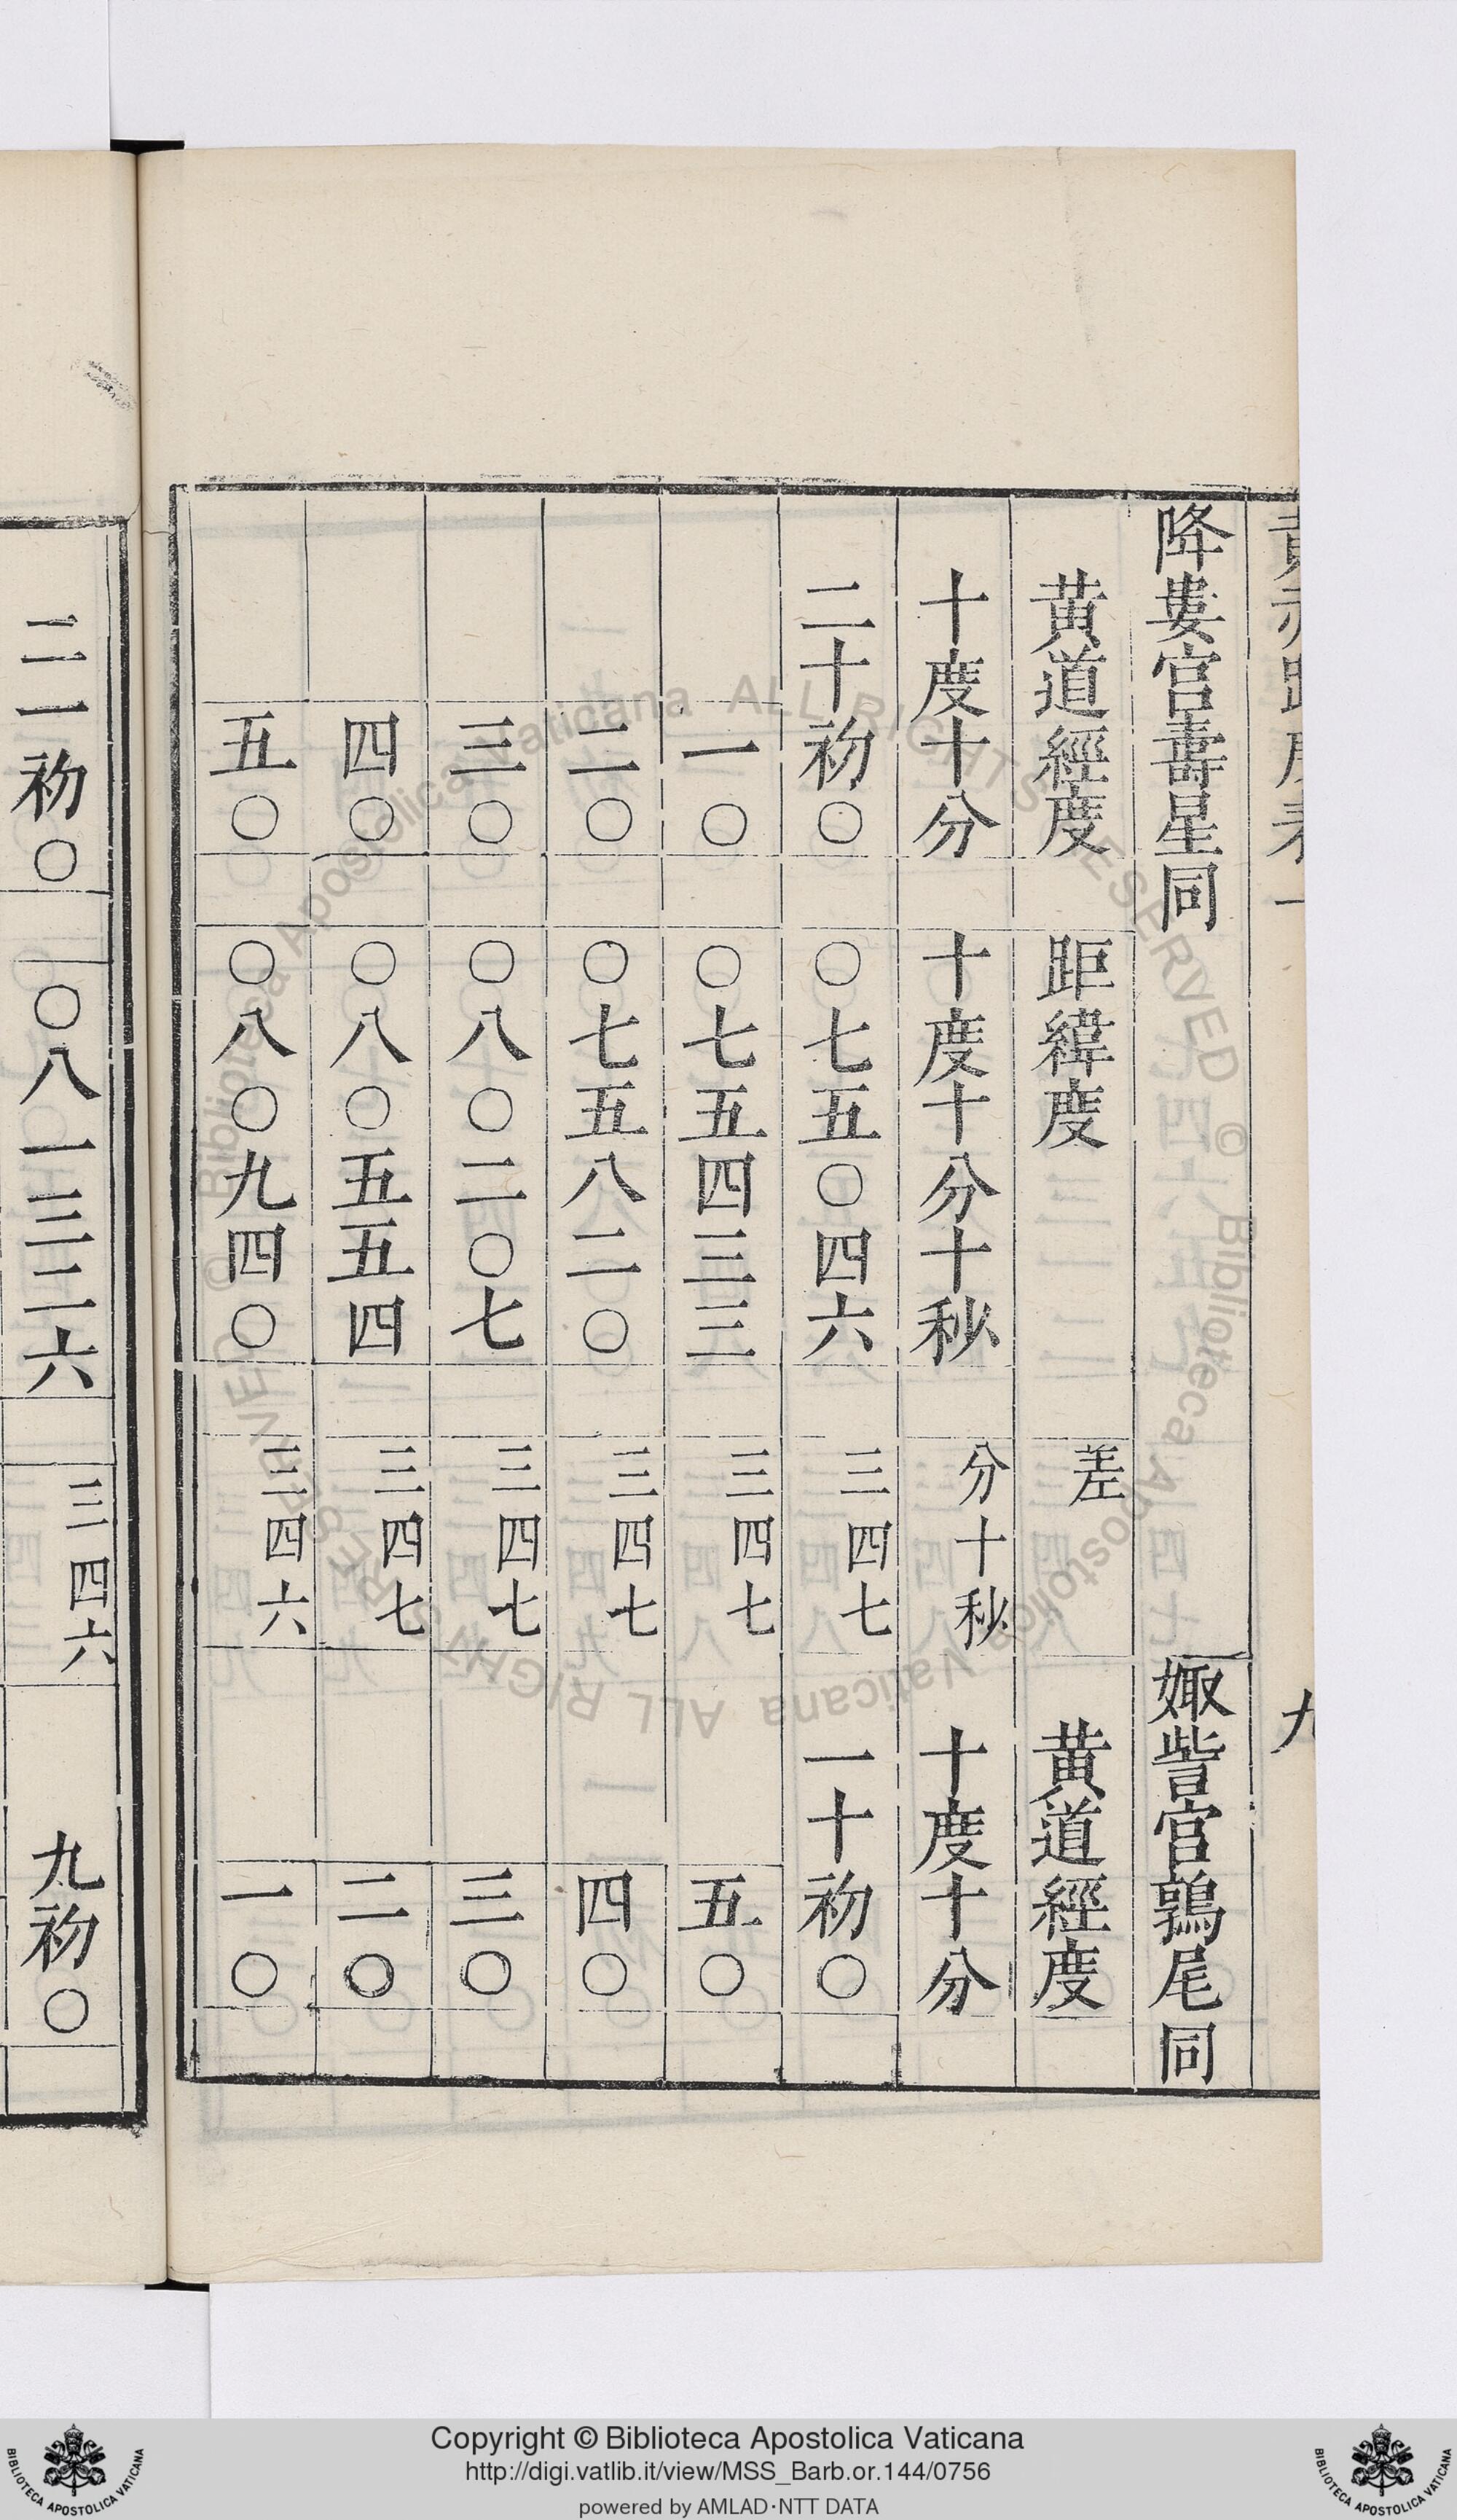 黃赤距度表一　九
降婁宮壽星同　娵訾宮鶉尾同
黃道經度　距緯度　差　黃道經度
十度十分　十度十分十秒　分十秒　十度十分
二十初〇　〇七五〇四六　三四七　一十初〇
一〇　〇七五四三三　三四七　五〇
二〇　〇七五八二〇　三四七　四〇
三〇　〇八〇二〇七　三四七　三〇
四〇　〇八〇五五四　三四七　二〇
五〇　〇八〇九四〇　三四六　一〇
二一初〇　〇八一三二六　三四六　九初〇
© Biblioteca Apostolica Vaticana ALL RIGHTS RESERVED
© Biblioteca Apostolica Vaticana ALL RIGHTS RESERVED
BIBLIOTECA APOSTOLICA VATICANA
Copyright © Biblioteca Apostolica Vaticana
http://digi.vatlib.it/view/MSS_Barb.or.144/0756
powered by AMLAD·NTT DATA
BIBLIOTECA APOSTOLICA VATICANA